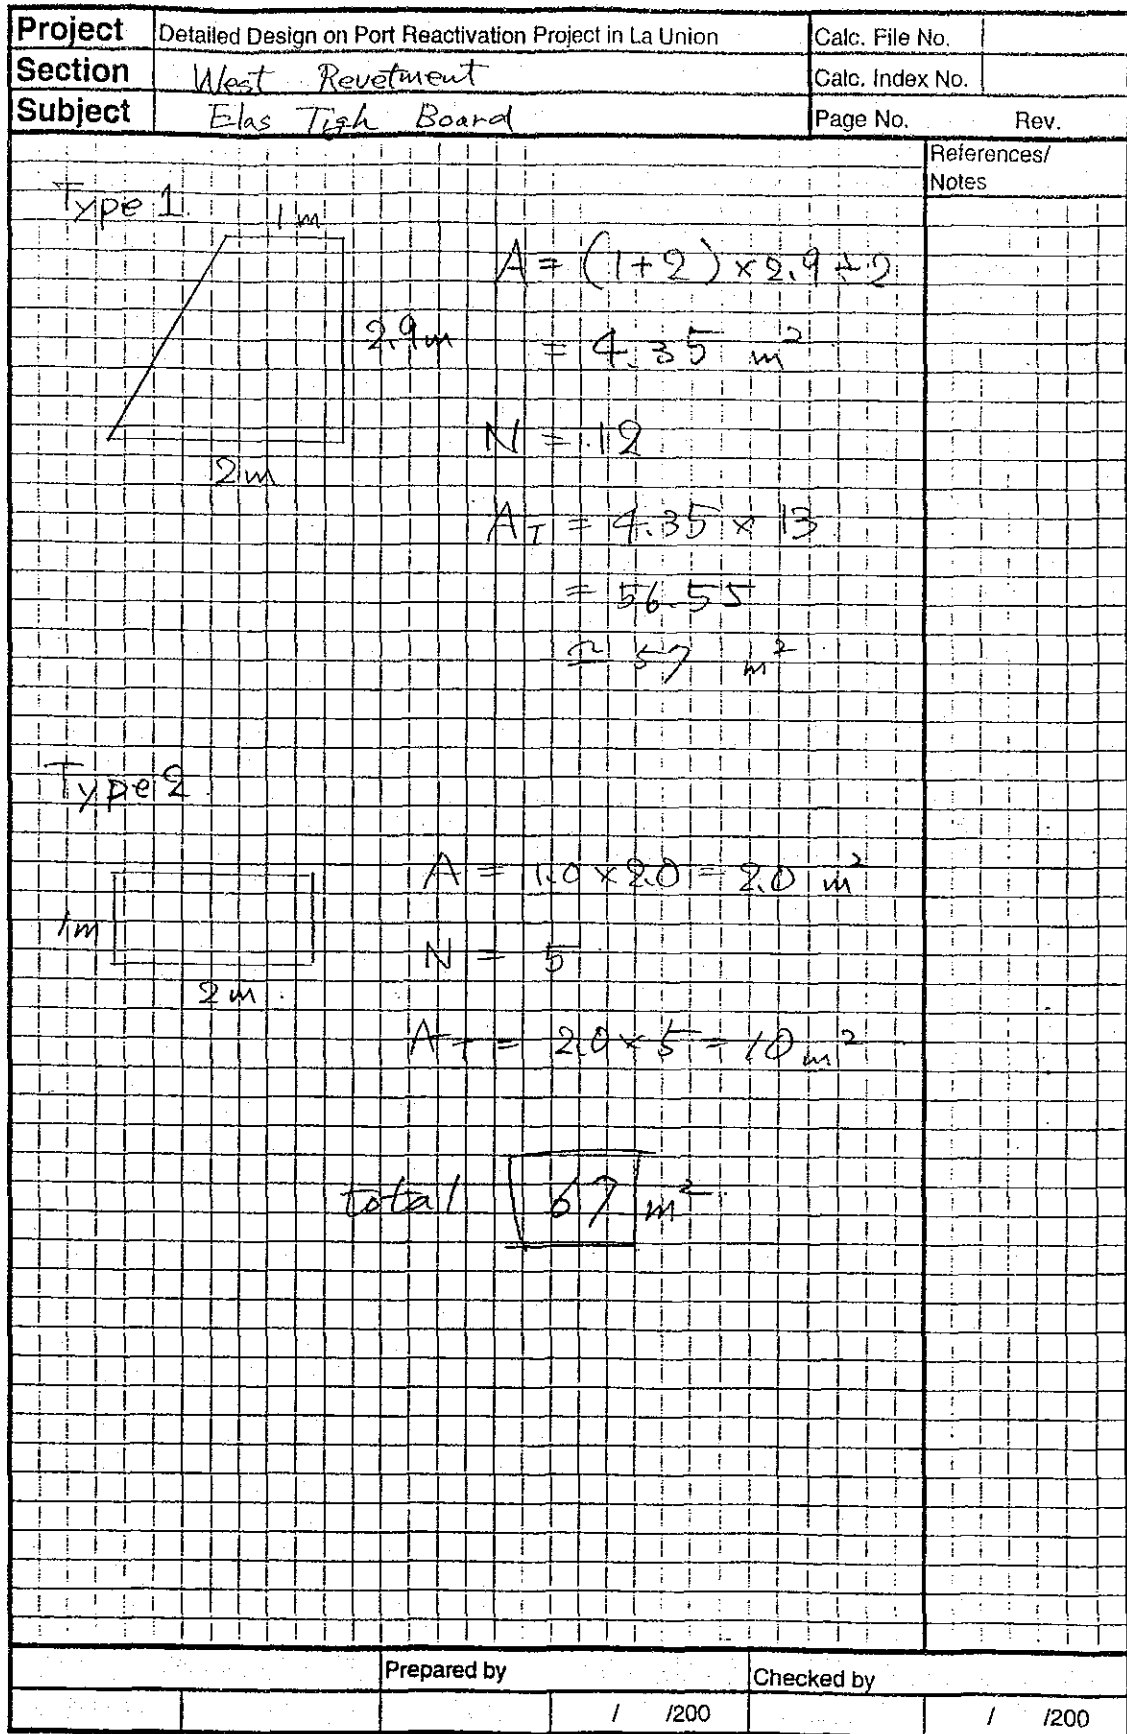 Project Detailed Design on Port Reactivation Project in La Union Calc. File No.
Section West Revetment Calc. Index No.
Subject Elas Tigh Board Page No. Rev.
References/
Notes
Type 1
1 m
A = (1+2) × 2.9 ÷ 2
2.9m
= 4.35 m²
N = 12
2m
A_T = 4.35 × 13
= 56.55
≃ 57 m²
Type 2
A = 1.0 × 2.0 = 2.0 m²
1m
N = 5
2m
A_T = 2.0 × 5 = 10 m²
total 67 m²
Prepared by Checked by
/ /200 / /200